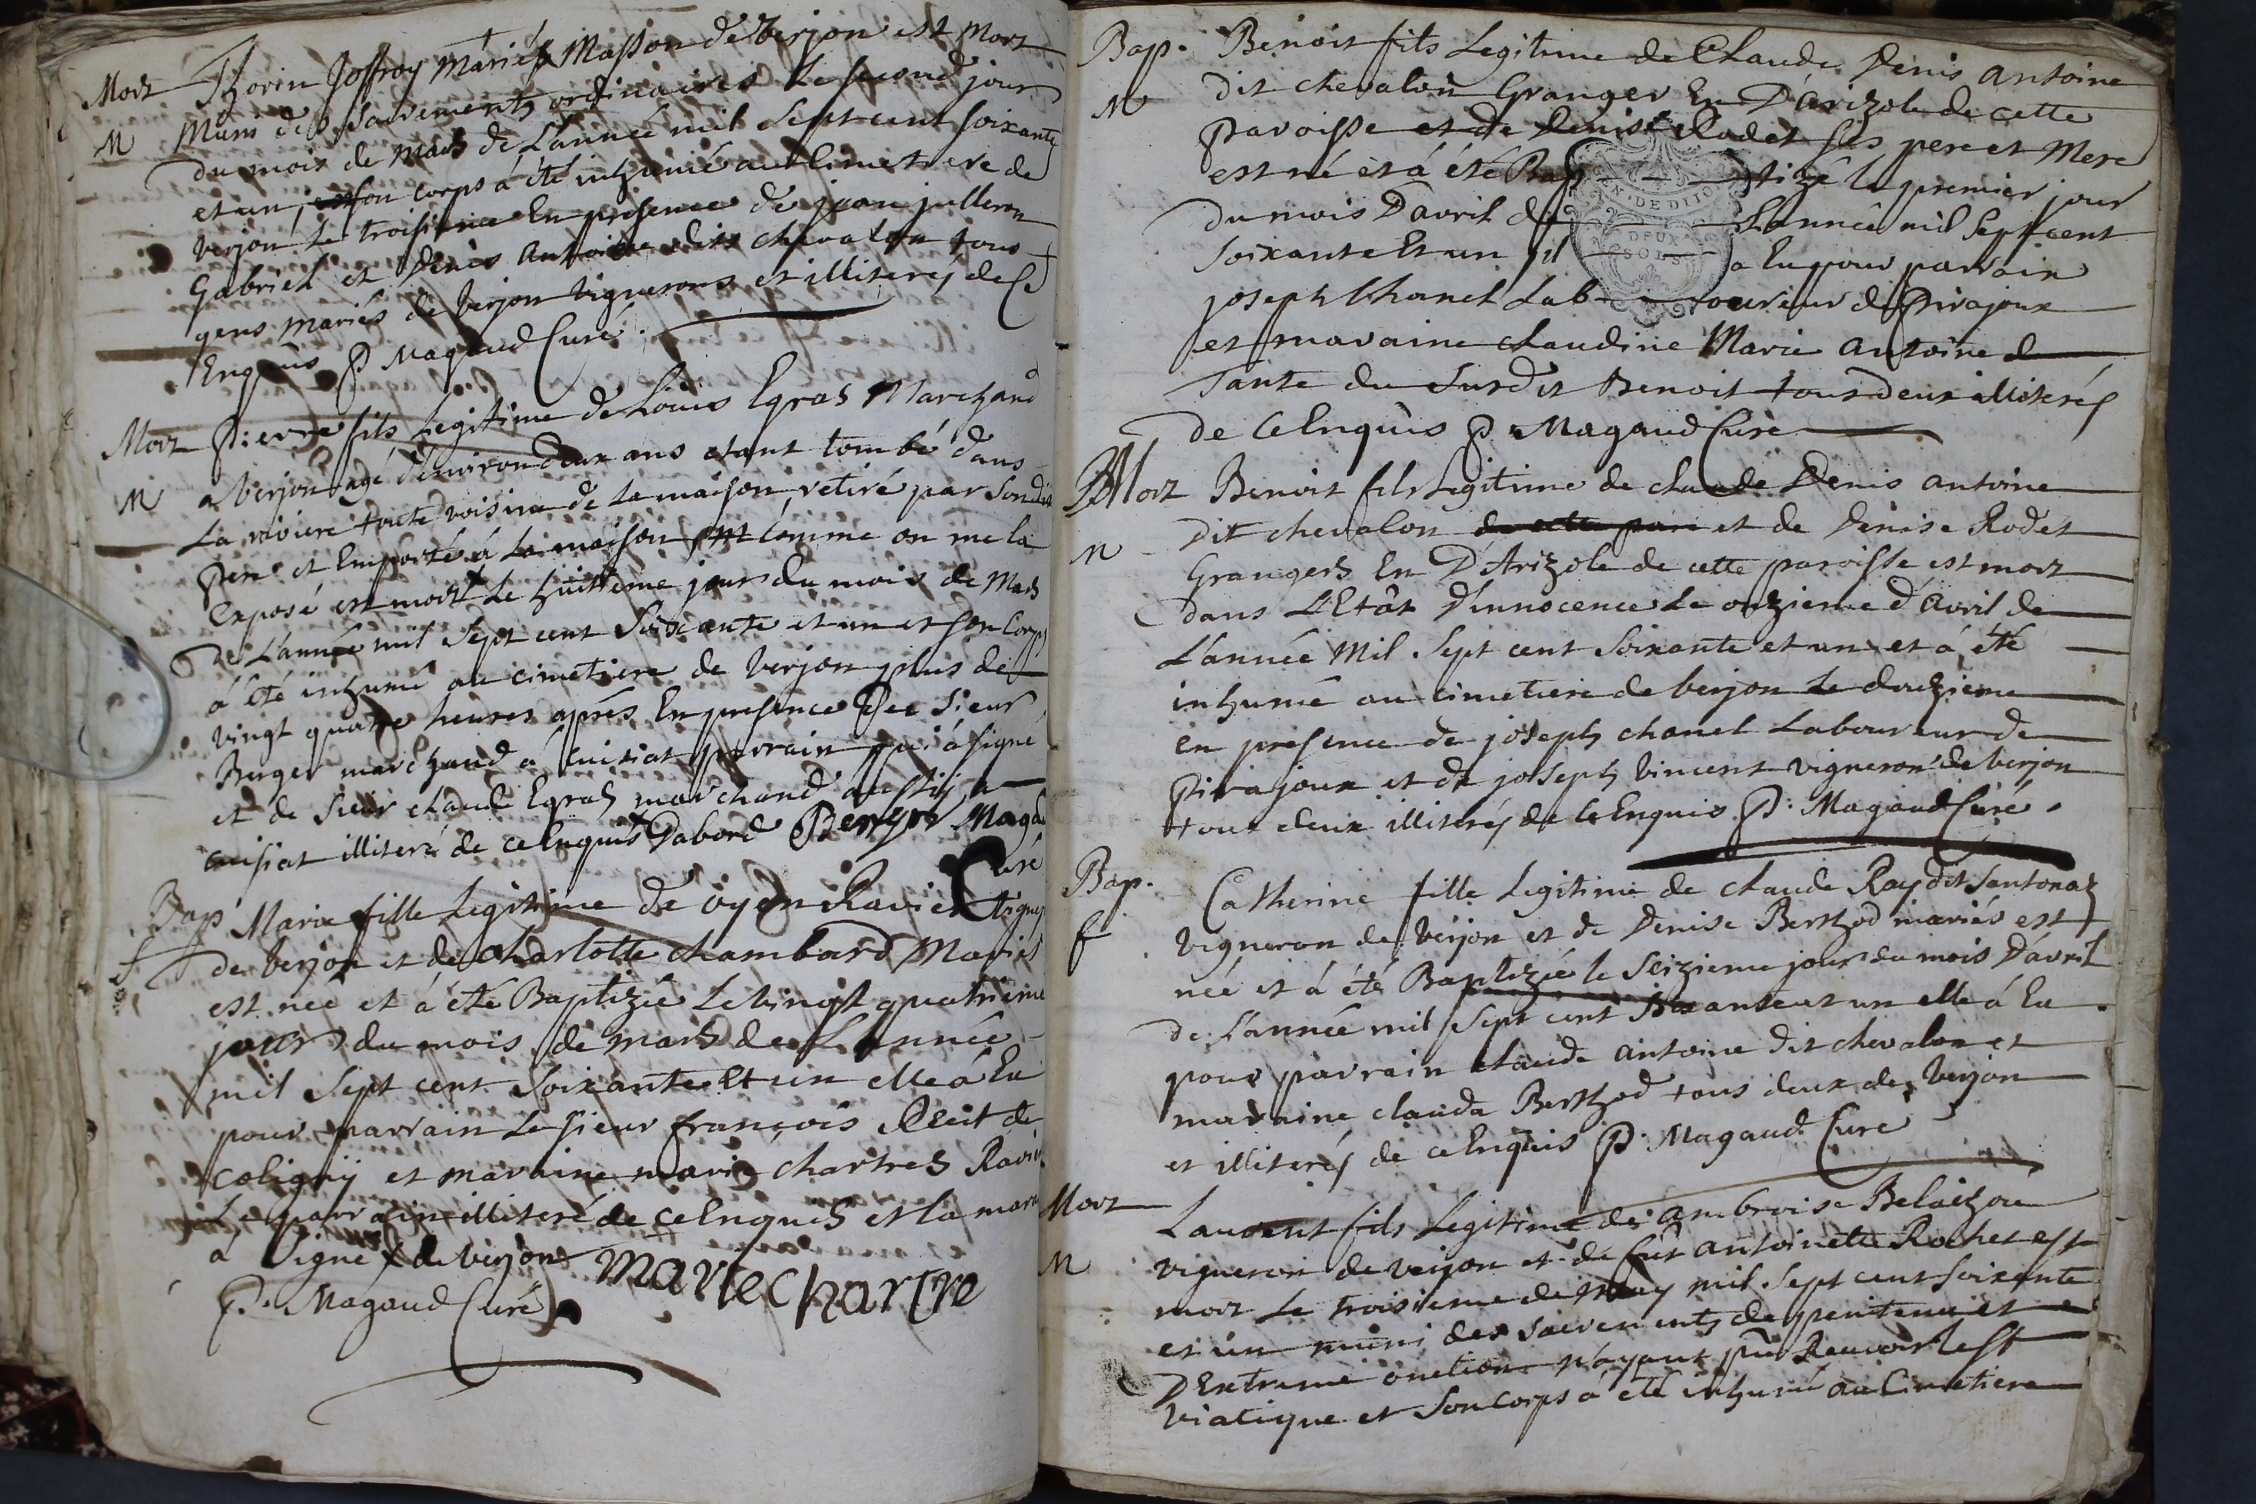 Mort Thorin Joffroy Marié Masson de Verjon est Mort
M Muni des Sacrements ordinaires le second jour
du mois de Mars de L'année mil Sept cent soixante
et un, son corps a été inhumé au Cimetiere de
Verjon le troisieme En presence de jean julleron
Gabriel et Denis Antoine dit chevalon tous
gens mariés de Verjon Vignerons et illiterés de Ce
Enquis P. Magaud Curé.
Mort Pierre fils Legitime de Louis Egraz Marchand
M a Verjon agé d'environ deux ans etant tombé dans
La riviere toute voisine de La maison, retiré par Son dit
Pere et Emporté a La maison comme on me la
Exposé est mort Le huitieme jour du mois de Mars
De L'année mil Sept cent Soixante et un et son Corps
á été inhumé au cimetiere de Verjon plus de
vingt quatre heures aprés En presence du Sieur
Burger marchand á Cuisiat parrain qui á signé
et de sieur claude Egraz marchand aussi a
cuisiat illiteré de ce Enquis Dabord P. Magaud
Curé
Bap. Marie fille Legitime de oyen Ravier Vigner
f de Verjon et de charlotte chambard Mariés
est née et á été Baptizée Le vingt quatrieme
jour du mois de mars de L'année
mil Sept cent Soixante Et un elle á Eu
pour parrain Le sieur françois Recit de
coligny et maraine marie chartres Ravier
Le parrain illiteré de ce Enquis et la mara
a Signé de Verjon marie chartre
P. Magaud Curé
Bap. Benoit fils Legitime de Claude Denis Antoine
M dit chevalon Granger En D'Arizole de cette
Paroisse et de Denise Rodet Ses pere et Mere
est né et á été Bap tizé le premier jour
du mois D'avril de L'année mil Sept cent
Soixante Et un il a Eu pour parrain
joseph Chanel Lab oureur de Pirajoux
et maraine claudine Marie Antoine
Tante du Surdit Benoit tous deux illiterés
de Ce Enquis P. Magaud Curé
Mort Benoit fils Legitime de claude Denis Antoine
M Dit chevalon de cette paro et de Denise Rodet
Grangers En D'Arizole de cette paroisse est mort
dans L'Etât D'innocence Le onzieme d'avril de
L'année Mil Sept cent Soixante et un et á été
inhumé au cimetiere de Verjon Le douzieme
en presence de joseph chanel Laboureur de
Pirajoux et de joseph Vincent vigneron de Verjon
tous deux illiterés de ce Enquis P. Magaud Curé.
Bap. Catherine fille Legitime de claude Ray dit Santonaz
f vigneron de Verjon et de Denise Berthod mariés est
née et á été Baptizée le Seizieme jour du mois D'avril
de L'année mil Sept cent Soixante et un elle á Eu
pour parrain claude Antoine dit chevalon et
maraine clauda Berthod tous deux de Verjon
et illiterés de ce Enquis P. Magaud Curé
Mort Laurent fils Legitime de ambroise Belaizou
M vigneron de Verjon et de fut antoinette Rochet est
mort Le troisieme de May mil Sept cent Soixante
et un muni des Sacrements de penitence et
D'Extreme onction n'ayant pu Recevoir Le St
viatique et Son corps á été inhumé au Cimetiere
GEN. DE DIJON
DEUX SOLS